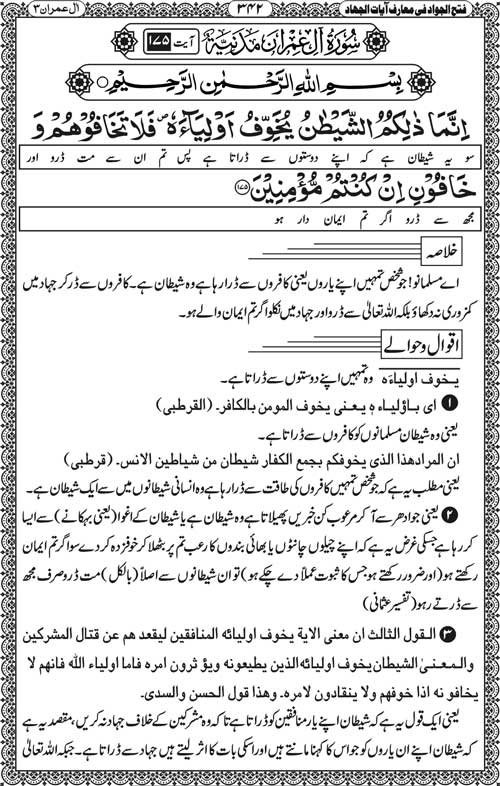 فتح الجواد فی معارف آیات الجهاد ۳۴۲ آل عمران ۳
سُوْرَةُ اٰلِ عِمْرٰنَ مَدَنِيَّةٌ آیت ۱۷۵
بِسْمِ اللهِ الرَّحْمٰنِ الرَّحِيْمِ
اِنَّمَا ذٰلِكُمُ الشَّيْطٰنُ يُخَوِّفُ اَوْلِيَآءَهٗ ۪ فَلَا تَخَافُوْهُمْ وَ
سو یہ شیطان ہے کہ اپنے دوستوں سے ڈراتا ہے پس تم ان سے مت ڈرو اور
خَافُوْنِ اِنْ كُنْتُمْ مُّؤْمِنِيْنَ ۱۷۵
مجھ سے ڈرو اگر تم ایمان دار ہو
خلاصہ
اے مسلمانو! جو شخص تمہیں اپنے یاروں یعنی کافروں سے ڈرا رہا ہے وہ شیطان ہے۔ کافروں سے ڈر کر جہاد میں
کمزوری نہ دکھاؤ بلکہ اللہ تعالیٰ سے ڈرو اور جہاد میں نکلو اگر تم ایمان والے ہو۔
اقوال وحوالے
یخوف اولیاءہ وہ تمہیں اپنے دوستوں سے ڈراتا ہے۔
۱ ای باؤلیاء ہ یعنی یخوف المومن بالکافر۔ (القرطبی)
یعنی وہ شیطان مسلمانوں کو کافروں سے ڈراتا ہے۔
ان المراد ھذا الذی یخوفکم بجمع الکفار شیطان من شیاطین الانس۔ (قرطبی)
یعنی مطلب یہ ہے کہ جو شخص تمہیں کافروں کی طاقت سے ڈرا رہا ہے وہ انسانی شیطانوں میں سے ایک شیطان ہے۔
۲ یعنی جو ادھر سے آ کر مرعوب کن خبریں پھیلاتا ہے وہ شیطان ہے یا شیطان کے اغوا (یعنی بہکانے) سے ایسا
کر رہا ہے جسکی غرض یہ ہے کہ اپنے چیلوں چانٹوں یا بھائی بندوں کا رعب تم پر بٹھلا کر خوفزدہ کر دے سو اگر تم ایمان
رکھتے ہو (اور ضرور رکھتے ہو جس کا ثبوت عملاً دے چکے ہو) تو ان شیطانوں سے اصلاً (بالکل) مت ڈرو صرف مجھ
سے ڈرتے رہو (تفسیر عثمانی)
۳ القول الثالث ان معنی الایة یخوف اولیائه المنافقین لیقعد هم عن قتال المشرکین
والمعنیٰ الشیطان یخوف اولیائه الذین یطیعونه ویؤ ثرون امره فاما اولیاء الله فانهم لا
یخافو نه اذا خوفهم ولا ینقادون لامره. وهذا قول الحسن والسدی.
یعنی ایک قول یہ ہے کہ شیطان اپنے یار منافقین کو ڈراتا ہے تاکہ وہ مشرکین کے خلاف جہاد نہ کریں، مقصد یہ ہے
کہ شیطان اپنے ان یاروں کو جو اس کا کہنا مانتے ہیں اور اسکی بات کا اثر لیتے ہیں جہاد سے ڈراتا ہے۔ جبکہ اللہ تعالیٰ